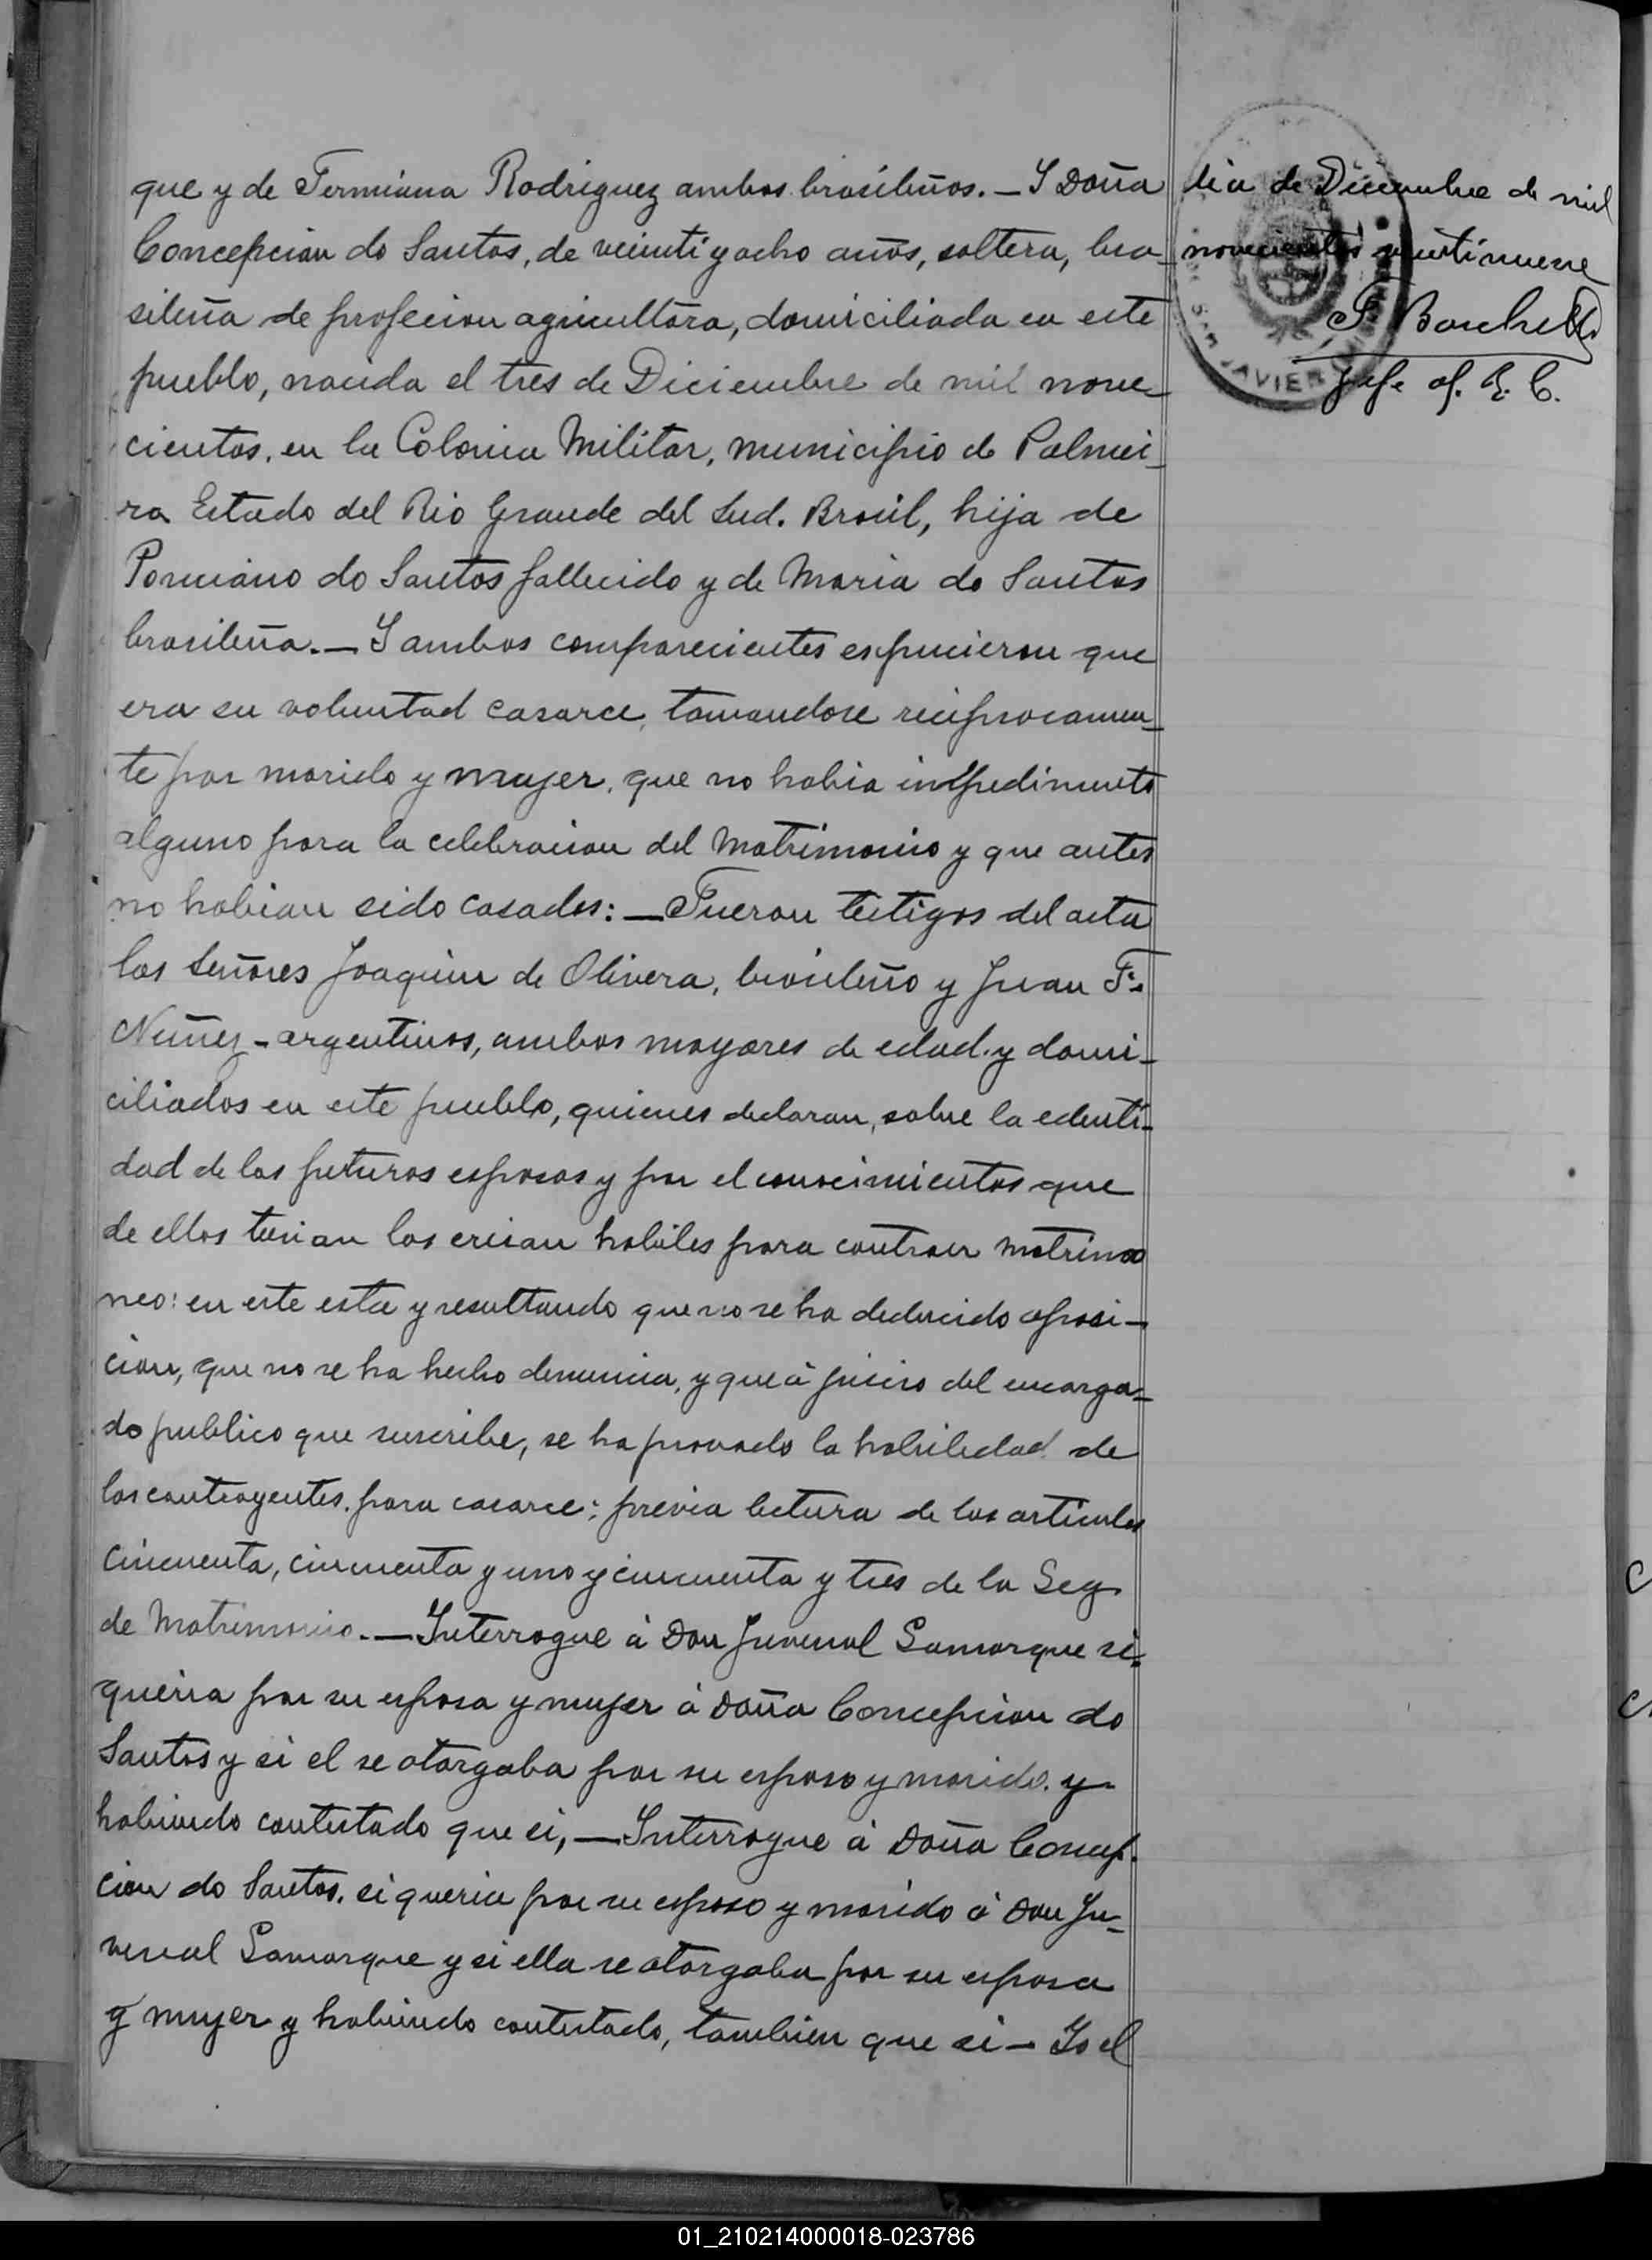 que y de Fermiana Rodriguez ambos brasileños. — Y Doña
Concepcion do Santos, de veinti y ocho años, soltera, bra-
sileña de profecion agricultora, domiciliada en este
pueblo, nacida el tres de Diciembre de mil nove-
cientos, en la Colonia Militar, municipio de Palmei-
ra Estado del Rio Grande del Sud. Brasil, hija de
Ponciano do Santos fallecido y de Maria do Santos
brasileña. — Y ambos comparecientes espucieron que
era su voluntad casarce, tomandose reciprocamen-
te por marido y mujer, que no habia impedimento
alguno para la celebracion del Matrimonio y que antes
no habian sido casados: — Fueron testigos del acta
los Señores Joaquin de Olivera, brasileño y Juan F.
Nuñez - argentinos, ambos mayores de edad y domi-
ciliados en este pueblo, quienes declaran, sobre la edenti-
dad de los futuros esposos y por el conocimientos que
de ellos tenian los creian habiles para contraer matrimo
neo: en este esta y resultando que no se ha deducido oposi-
cion, que no se ha hecho denuncia, y que á juicio del encarga-
do publico que suscribe, se ha provado la habiledad de
los contrayentes para casarce; previa letura de los articulos
cincuenta, cincuenta y uno y cincuenta y tres de la Ley
de Matrimonio. — Interrogue á Don Juvenal Lamarque si
queria por su esposa y mujer á Doña Concepcion do
Santos y si el se otorgaba por su esposo y marido. y
habiendo contestado que si, — Interrogue á Doña Concep-
cion do Santos. si queria por su esposo y marido á Don Ju-
venal Lamarque y si ella se otorgaba por su esposa
y mujer y habiendo contestado, tambien que si — Yo el
dia de Diciembre de mil
novecientos veintinueve
Jefe of. R. C.
SAN JAVIER
01_210214000018-023786